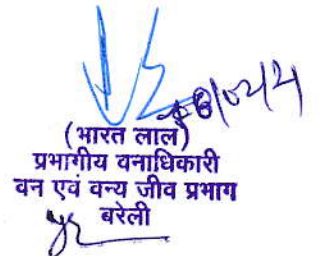 (भारत लाल)
प्रभागीय वनाधिकारी
वन एवं वन्य जीव प्रभाग
बरेली